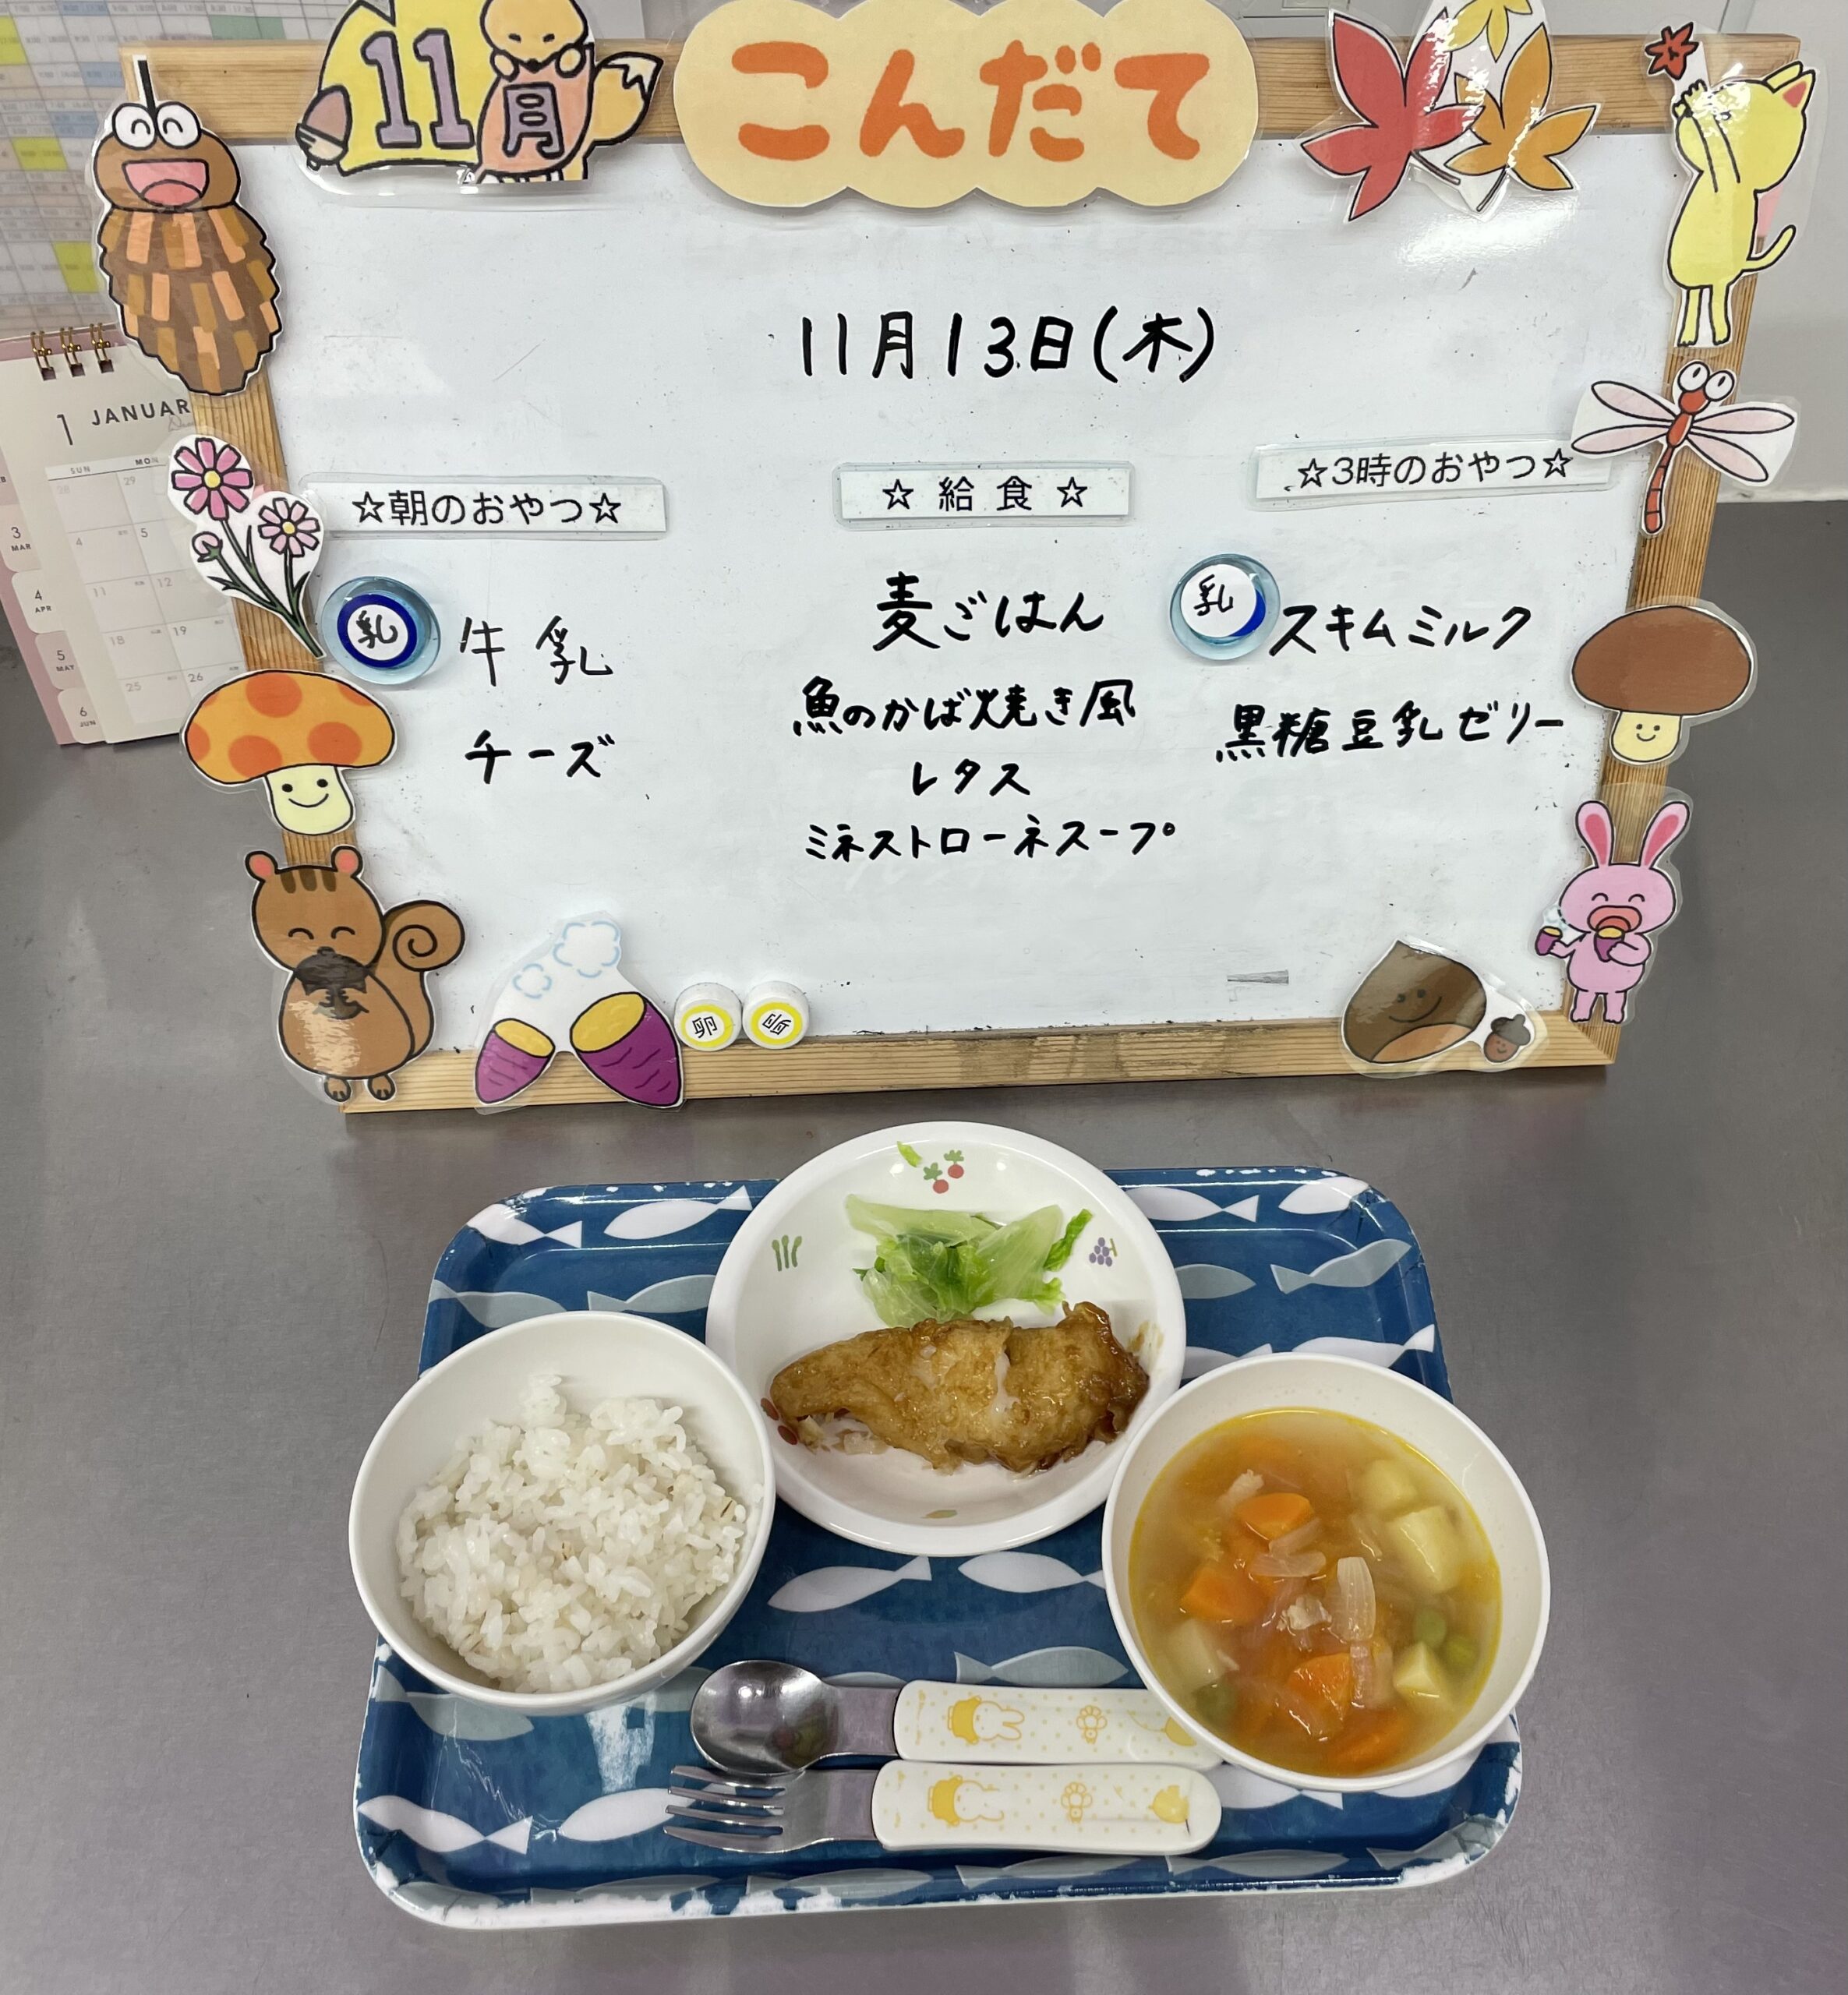 11月
こんだて
11月13日(木)
☆朝のおやつ☆
乳
牛乳
チーズ
☆ 給 食 ☆
麦ごはん
魚のかば焼き風
レタス
ミネストローネスープ
☆3時のおやつ☆
乳
スキムミルク
黒糖豆乳ゼリー
卵
卵
1 JANUAR
SUN
MON
28
29
4
5
11
12
18
19
25
26
3
MAR
4
APR
5
MAY
6
JUN